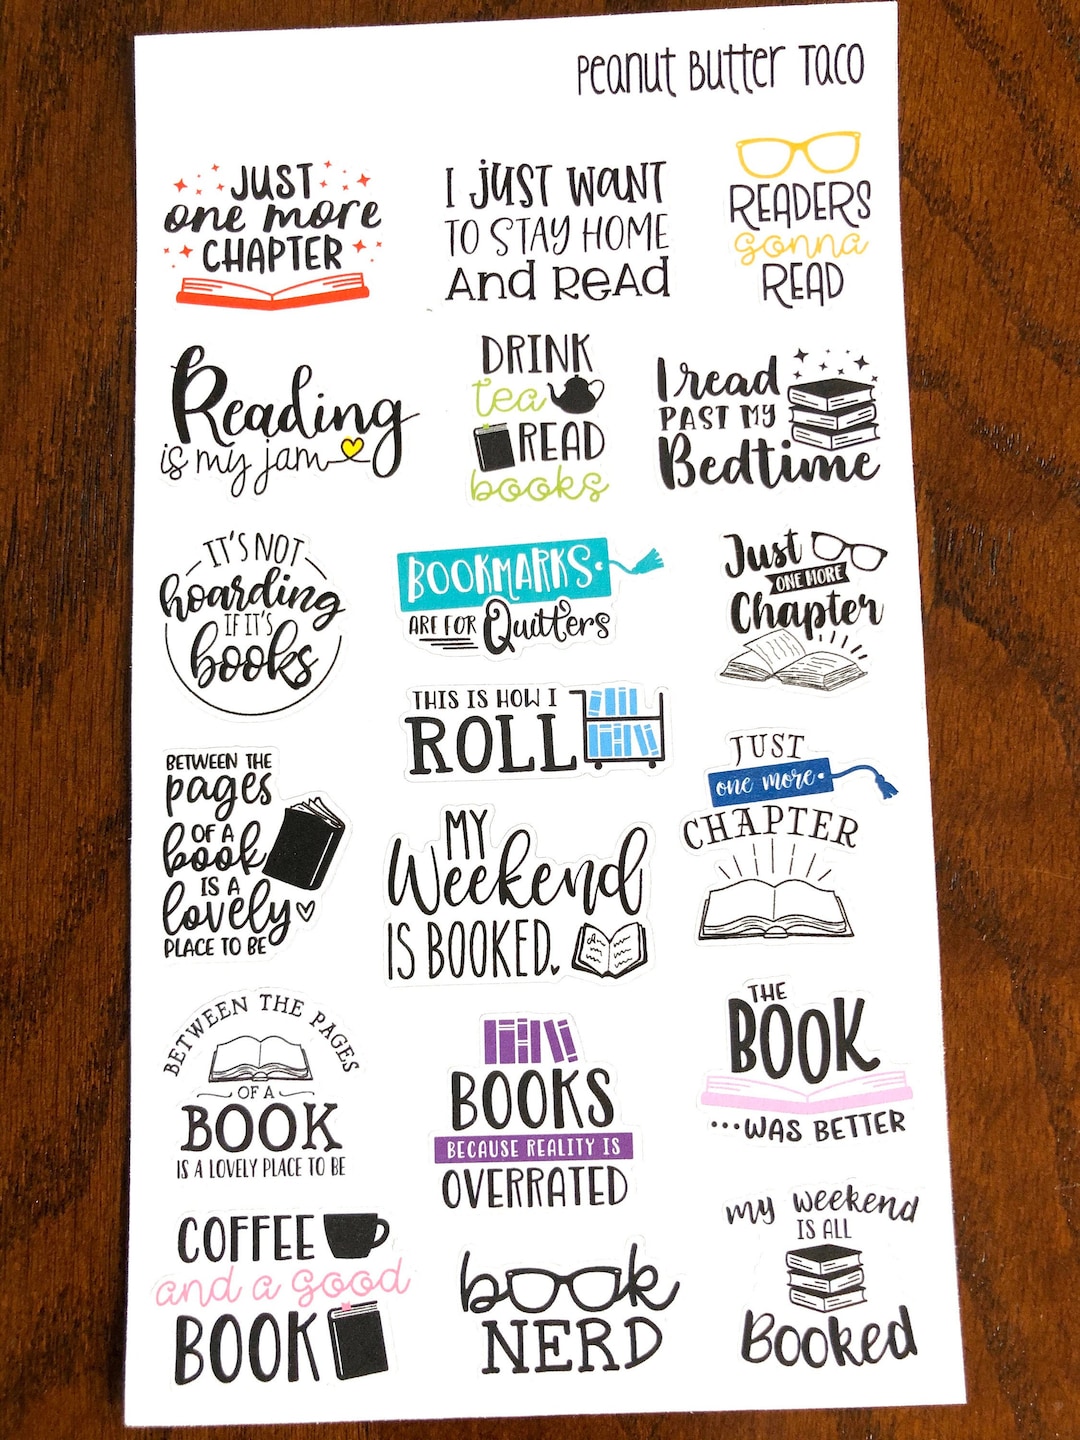 Peanut Butter Taco
JUST
one more
CHAPTER
I JUST WANT
TO STAY HOME
And ReAd
READERS
gonna
READ
Reading
is my jam
DRINK
tea
READ
books
I read
PAST MY
Bedtime
IT'S NOT
hoarding
IF IT'S
books
BOOKMARKS
ARE FOR Quitters
Just
ONE MORE
Chapter
THIS IS HOW I
ROLL
BETWEEN THE
pages
OF A
book
IS A
lovely
PLACE TO BE
MY
Weekend
IS BOOKED.
JUST
one more
CHAPTER
BETWEEN THE PAGES
OF A
BOOK
IS A LOVELY PLACE TO BE
BOOKS
BECAUSE REALITY IS
OVERRATED
THE
BOOK
...WAS BETTER
COFFEE
and a good
BOOK
book
NERD
my weekend
IS ALL
Booked